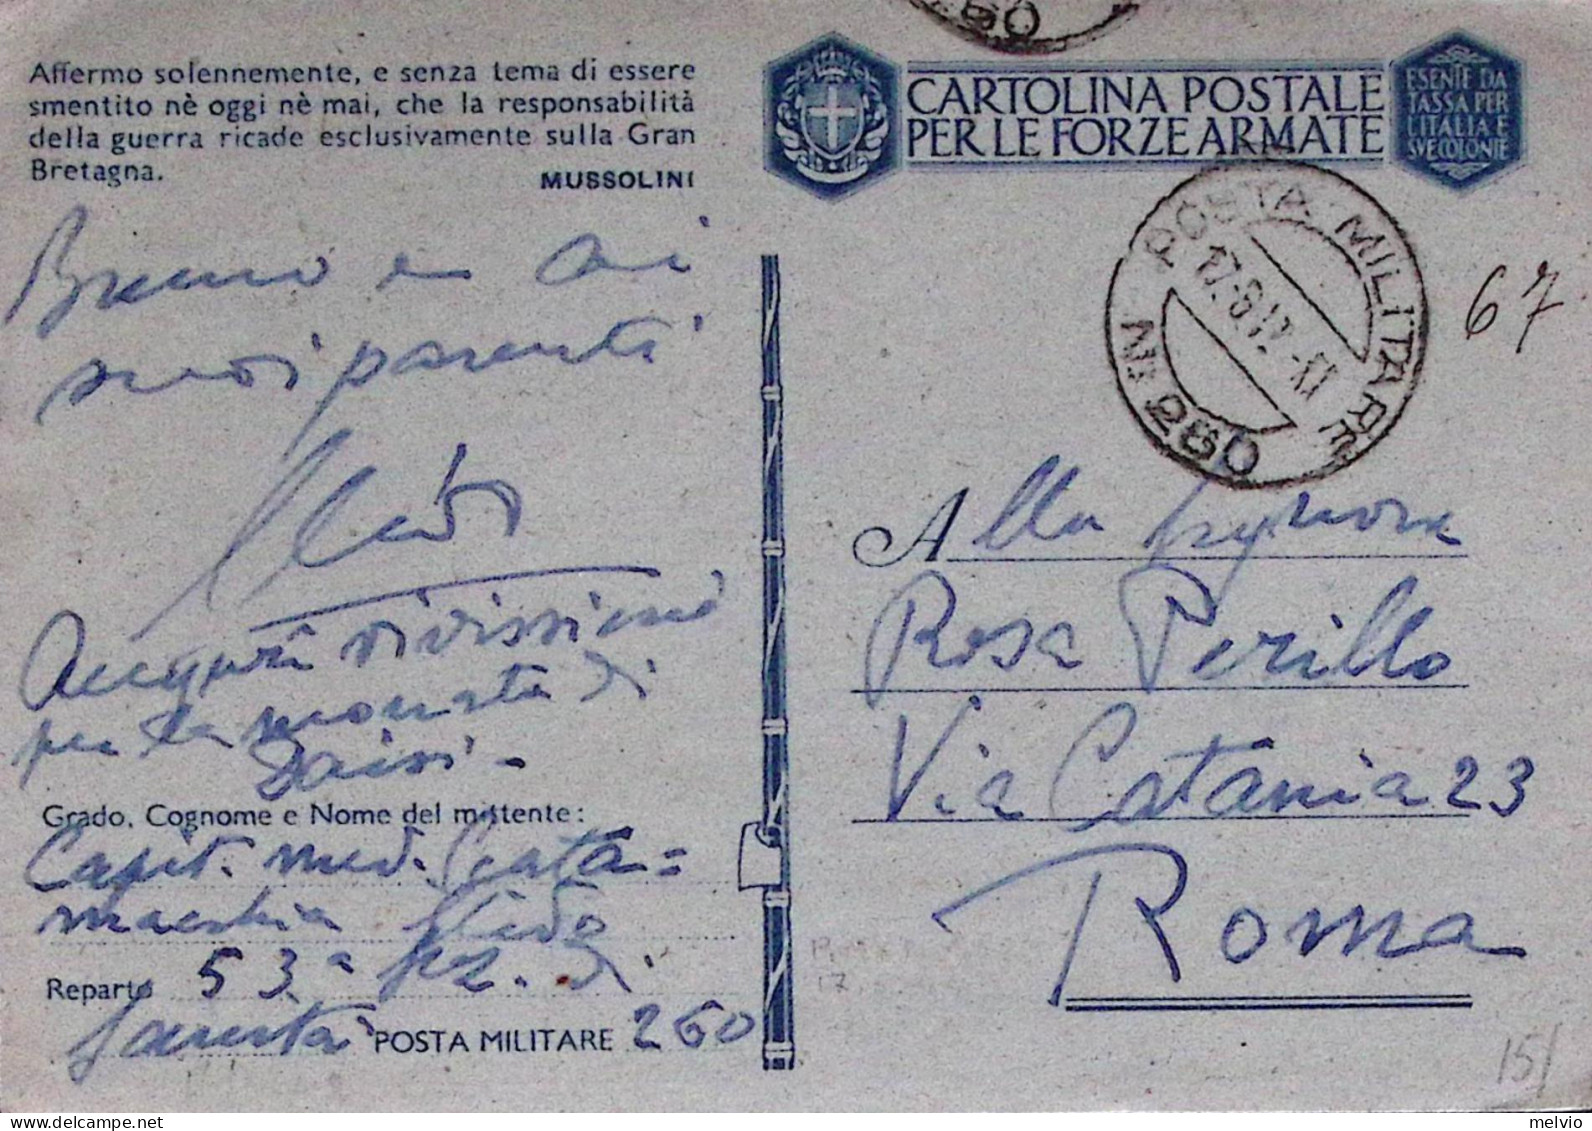 Affermo solennemente, e senza tema di essere
smentito nè oggi nè mai, che la responsabilità
della guerra ricade esclusivamente sulla Gran
Bretagna.
MUSSOLINI
Bruno e ai
suoi parenti
Guido
vivissimi
per la
di
Grado, Cognome e Nome del mittente:
Capit. med. Scata=
macchia Guido
Reparto 53ª sz. 
Sanità POSTA MILITARE 260
CARTOLINA POSTALE
PER LE FORZE ARMATE
ESENTE DA
TASSA PER
L'ITALIA E
SVE COLONIE
POSTA MILITARE
Nº 260
67
Alla Signora
Rosa Perillo
Via Catania 23
Roma
15/
melvio